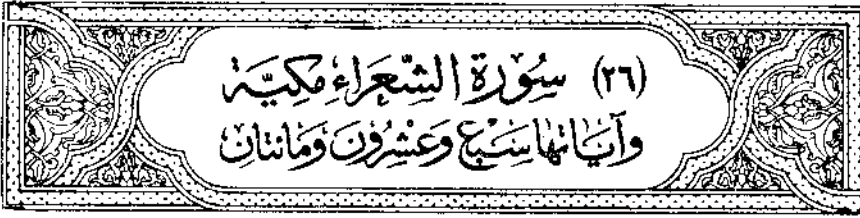 (٢٦) سُورَة الشِّعَرَاءِ مَكِيَّة
وَآيَاتهَا سَبْع وَعشْرُونَ وَمَائتَان